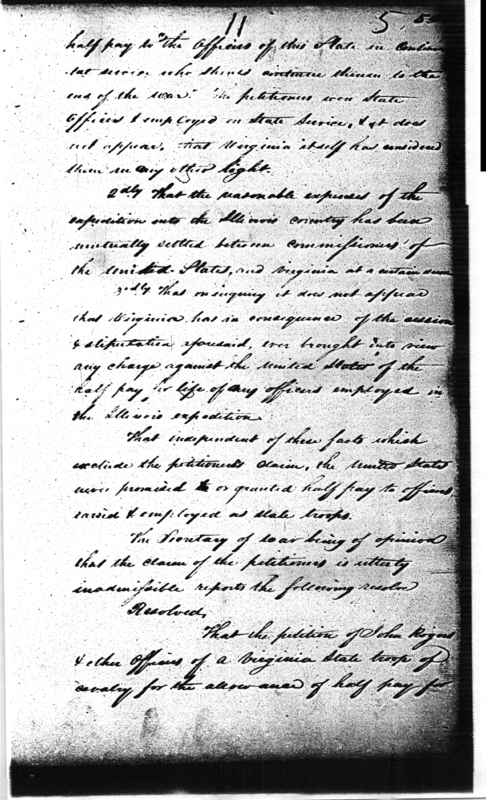 11 5,
half pay to the Officers of this State in Continen
tal service who shines continue therein to the
end of the war." The petitioners were State
Officers & employed on State Service, & it does
not appear, that Virginia itself has considered
them in any other light.
2dly That the reasonable expenses of the
expedition into the Illinois country has been
mutually settled between commissioners of
the United States, and Virginia at a certain sum
3rdly That on inquiry it does not appear
that Virginia has in consequence of the cession
& stipulation aforesaid, ever brought into view
any charge against the United States of the
half pay for life of any officers employed in
the Illinois expedition
That independent of these facts which
exclude the petitioners claim, the United States
never promised or granted half pay to officers
raised & employed as state troops.
The Secretary of war being of opinion
that the claim of the petitioners is utterly
inadmissible reports the following resolve
Resolved,
That the petition of John Rogers
& other Officers of a Virginia State troop of
cavalry for the allowance of half pay for